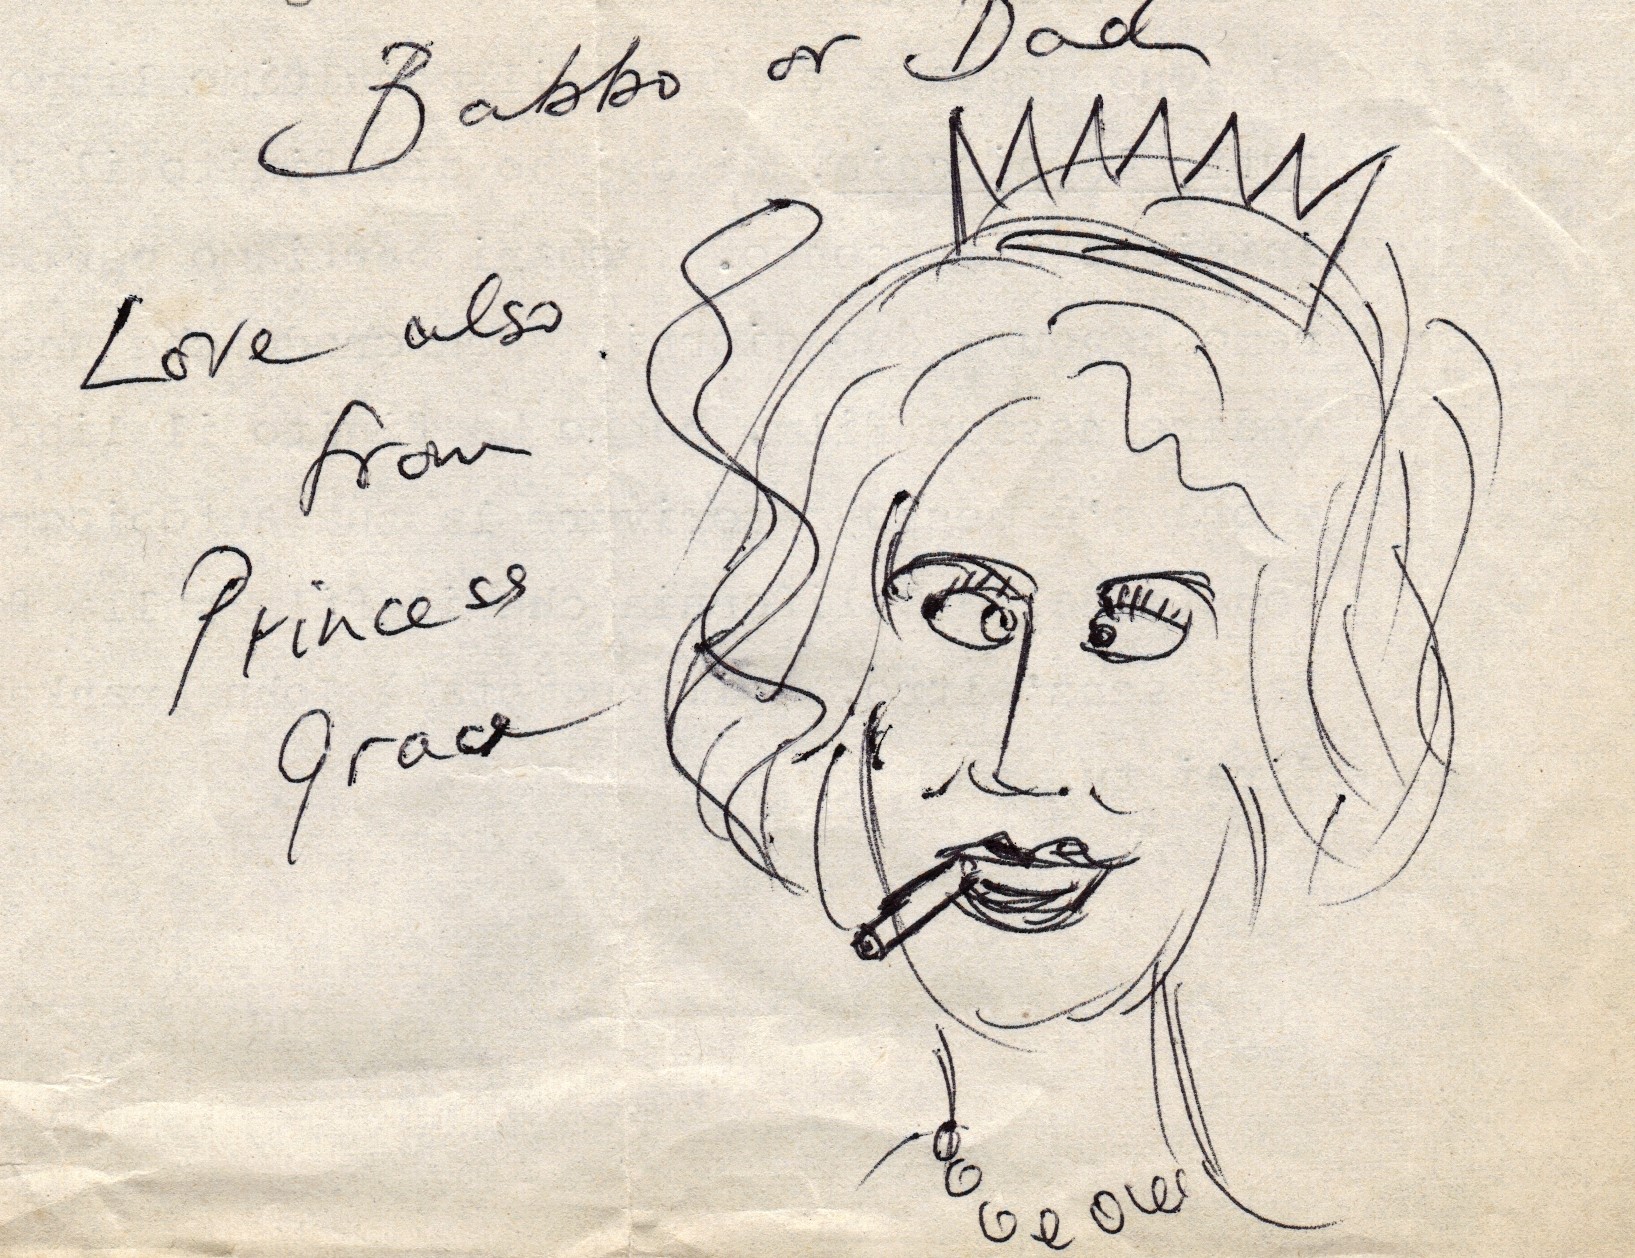 Babbo or Dad
Love also
from
Princess
Grace